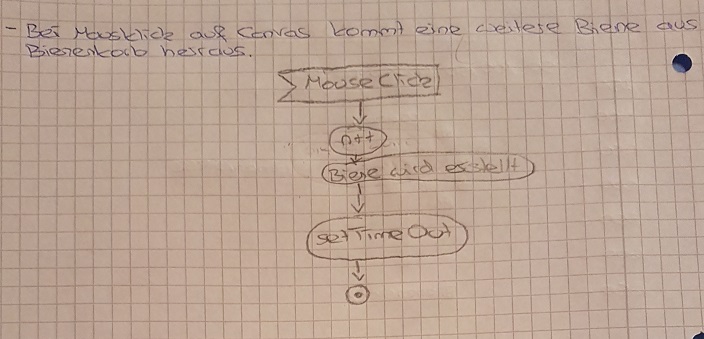 - Bei Mausklick auf Canvas kommt eine weitere Biene aus
Bienenkorb heraus.
MouseClick
n++
Biene wird erstellt
setTimeOut